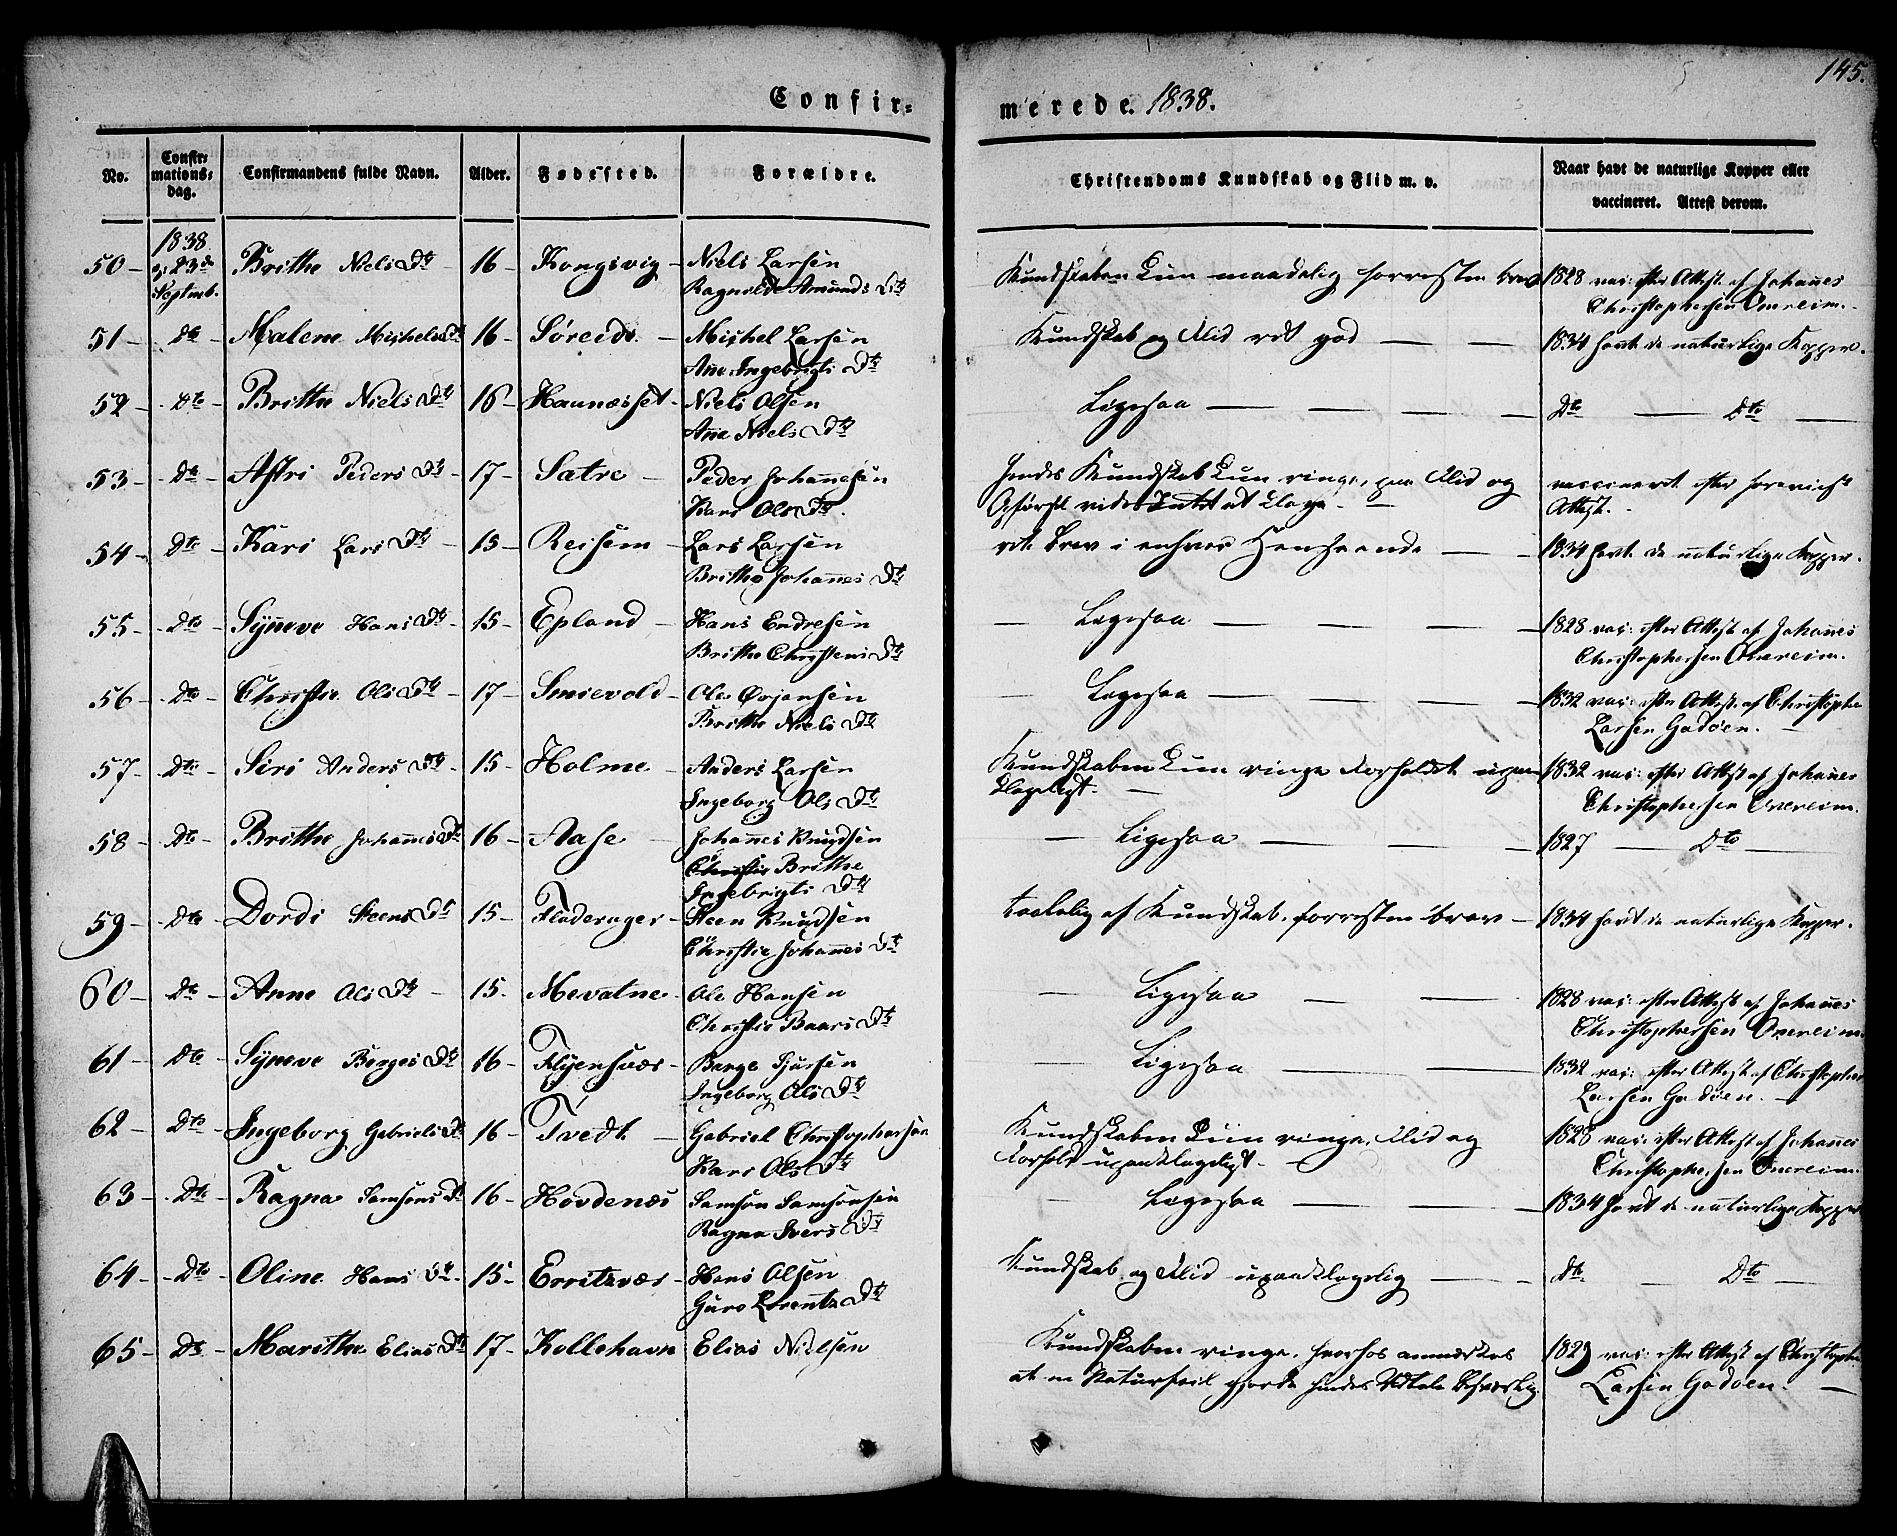 145.
Confir-
merede. 1838.
No.
Confir-
mations-
dag.
Confirmandens fulde Navn.
Alder.
Fødested.
Forældre.
Christendoms Kundskab og Flid m. v.
Naar havt de naturlige Kopper eller
vaccineret. Attest derom.
1838
50 - 23de Brithe Niels Dtr - 16 - Kongsvig - Niels Larsen
Septemb. Ragnilde Amunds Dtr
Kundskaben kun maadelig forresten brav 1828 vac: efter Attest af Johanes
Christophersen Onereim.
51 - Dto - Malene Michels Dtr 16 - Søreide - Michel Larsen
Ane Ingebrigts Dtr
Kundskab og Flid ret god 1834 havt de naturlige Kopper.
52 - Dto - Brithe Niels Dtr 16 - Haunæsset - Niels Olsen
Ane Niels Dtr
Ligesaa Dto Dto
53 - Dto - Astri Peders Dtr - 17 - Satre - Peder Johanesen
Kari Ols Dtr.
hendes Kundskab kun ringe, paa Flid og vaccineret efter foreviist
Opførsel vides Intet at klage. Attest.
54 - Dto - Kari Lars Dtr - 15 - Reisem - Lars Larsen
Brithe Johannes Dtr
ret brav i enhver Henseende 1834 havt de naturlige Kopper.
55 - Dto - Synneve Hans Dtr - 15 - Epland - Hans Endresen
Brithe Christens Dtr
Ligesaa 1828 vac: efter Attest af Johanes
Christophersen Onereim.
56 - Dto - Christie Ols Dtr - 17 - Smievold - Ole Ørjansen
Brithe Niels Dtr
Ligesaa 1832 vac: efter Attest af Christopher
Larsen Godøen.
57 - Dto - Siri Anders Dtr - 15 - Holme - Anders Larsen
Ingeborg Ols Dtr
Kundskaben kun ringe Forholdet upaa- 1832 vac: efter Attest af Johanes
klageligt. Christophersen Onereim.
58 - Dto - Brithe Johannes Dtr 16 - Aase - Johanes Knudsen
Christie Brithe
Ingebrigts Dtr
Ligesaa 1827 Dto
59 - Dto - Dordi Steens Dtr - 15 - Fladerager - Steen Knudsen
Christie Johannes Dtr
taalelig af Kundskab, forresten brav - 1834 havt de naturlige Kopper.
60 - Dto - Anne Ols Dtr - 15 - Mevatne - Ole Hansen
Christie Baars Dtr
Ligesaa 1828 vac: efter Attest af Johanes
Christophersen Onereim
61 - Dto - Synneve Børges Dtr 16 - Flyensvær - Børge Sjursen
Ingeborg Ols Dtr
Ligesaa 1832 vac: efter Attest af Christopher
Larsen Godøen.
62 - Dto - Ingeborg Gabriels Dtr 16 - Tvedt - Gabriel Christophersen
Kari Ols Dtr
Kundskaben kun ringe, Flid og 1828 vac: efter Attest af Johanes
Forhold upaaklageligt. Christophersen Onereim
63 - Dto - Ragna Samsons Dtr 16 - Hovdenæs Samson Samsonsen
Ragna Ivers Dtr
Ligesaa 1834 havt de naturlige Kopper
64 - Dto - Oline Hans Dtr - 15 - Erritzvær - Hans Olsen
Guro Lorentz Dtr
Kundskab og Flid upaaklagelig Dto Dto
65 - Dto - Marithe Elias Dtr 17 - Kollehavn Elias Nielsen
Kundskaben ringe, hvorhos anmærkes 1829 vac: efter Attest af Christopher
at en Naturfeil gjorde hendes Udtale besværlig. Larsen Godøen.